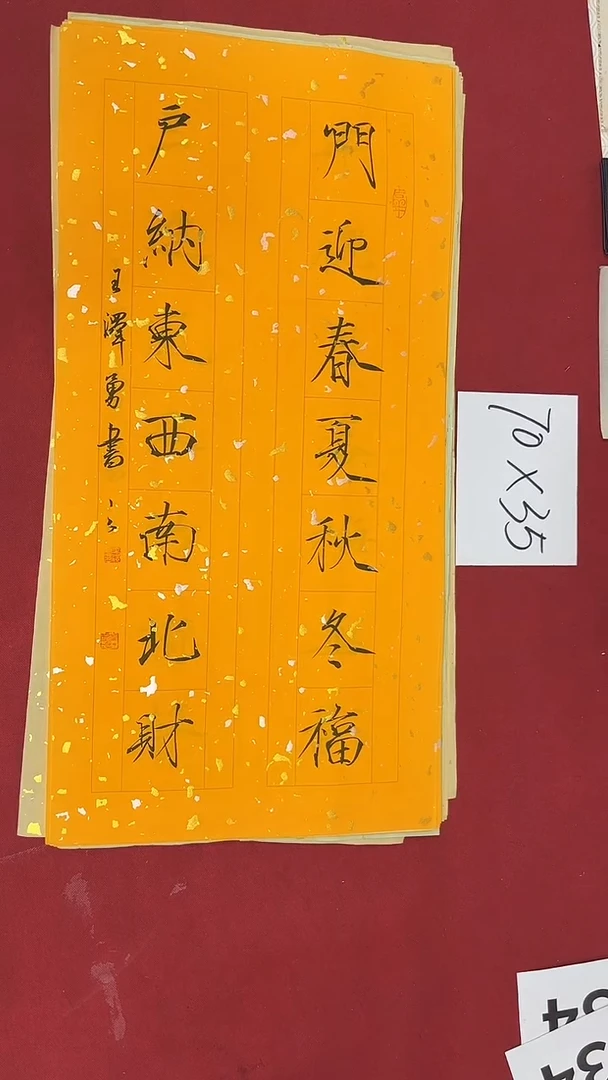 門迎春夏秋冬福
戶納東西南北財
王澤勇書
70×35
34
34